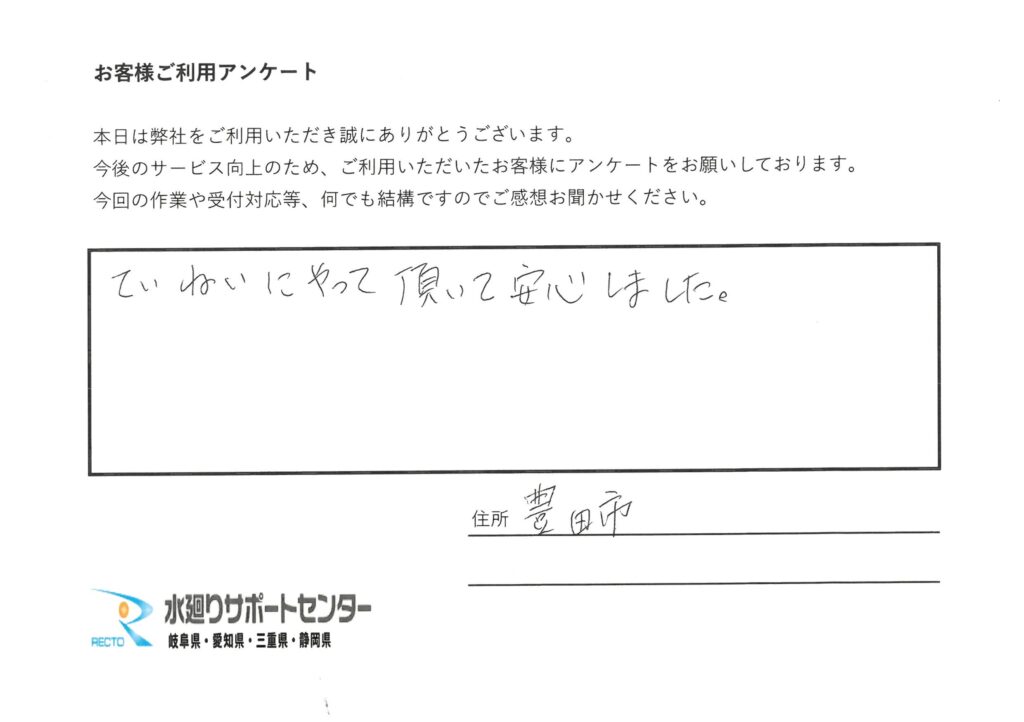 お客様ご利用アンケート
本日は弊社をご利用いただき誠にありがとうございます。
今後のサービス向上のため、ご利用いただいたお客様にアンケートをお願いしております。
今回の作業や受付対応等、何でも結構ですのでご感想お聞かせください。
ていねいにやって頂いて安心しました。
住所 豊田市
RECTO 水廻りサポートセンター
岐阜県・愛知県・三重県・静岡県